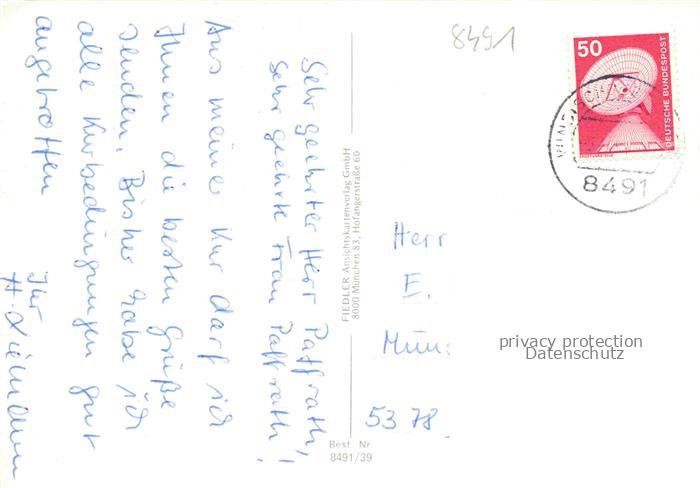 8491
50
DEUTSCHE BUNDESPOST
8491
Sehr geehrter Herr Paffrath,
sehr geehrte Frau Paffrath!
Aus meiner Kur darf ich
Ihnen die besten Grüße
senden. Bisher habe ich
alle Kurbedingungen gut
angetroffen
Ihr
FIEDLER Ansichtskartenverlag GmbH
8000 München 83, Hofangerstraße 60
Herr
E.
privacy protection
Datenschutz
5378
Best. Nr.
8491/39